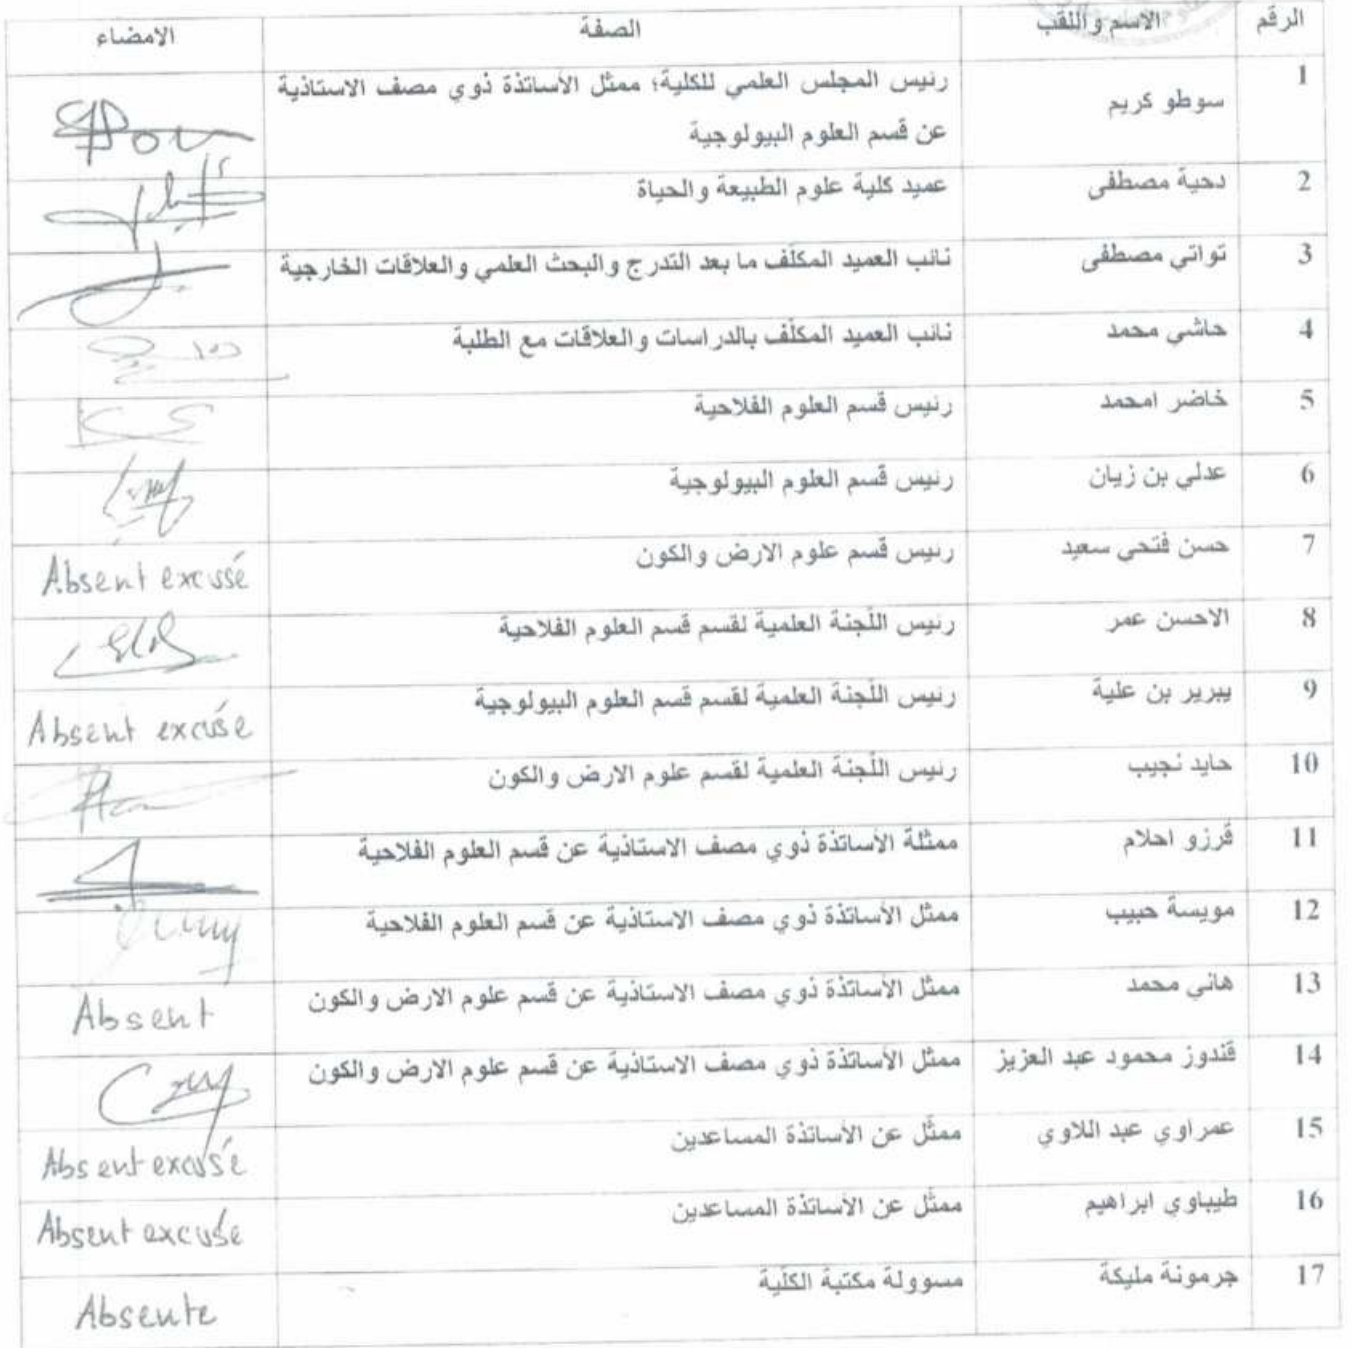 الرقم الاسم واللقب الصفة الامضاء
1 سوطو كريم رئيس المجلس العلمي للكلية؛ ممثل الأساتذة ذوي مصف الاستاذية
عن قسم العلوم البيولوجية
2 دحية مصطفى عميد كلية علوم الطبيعة والحياة
3 تواتي مصطفى نائب العميد المكلّف ما بعد التدرج والبحث العلمي والعلاقات الخارجية
4 حاشي محمد نائب العميد المكلّف بالدراسات والعلاقات مع الطلبة
5 خاضر امحمد رئيس قسم العلوم الفلاحية
6 عدلي بن زيان رئيس قسم العلوم البيولوجية
7 حسن فتحي سعيد رئيس قسم علوم الارض والكون Absent excusé
8 الاحسن عمر رئيس اللّجنة العلمية لقسم قسم العلوم الفلاحية
9 يبرير بن علية رئيس اللّجنة العلمية لقسم قسم العلوم البيولوجية Absent excusé
10 حايد نجيب رئيس اللّجنة العلمية لقسم علوم الارض والكون
11 قرزو احلام ممثلة الأساتذة ذوي مصف الاستاذية عن قسم العلوم الفلاحية
12 مويسة حبيب ممثل الأساتذة ذوي مصف الاستاذية عن قسم العلوم الفلاحية
13 هاني محمد ممثل الأساتذة ذوي مصف الاستاذية عن قسم علوم الارض والكون Absent
14 قندوز محمود عبد العزيز ممثل الأساتذة ذوي مصف الاستاذية عن قسم علوم الارض والكون
15 عمراوي عبد اللاوي ممثّل عن الأساتذة المساعدين Absent excusé
16 طيباوي ابراهيم ممثّل عن الأساتذة المساعدين Absent excusé
17 جرمونة مليكة مسوولة مكتبة الكلّية Absente